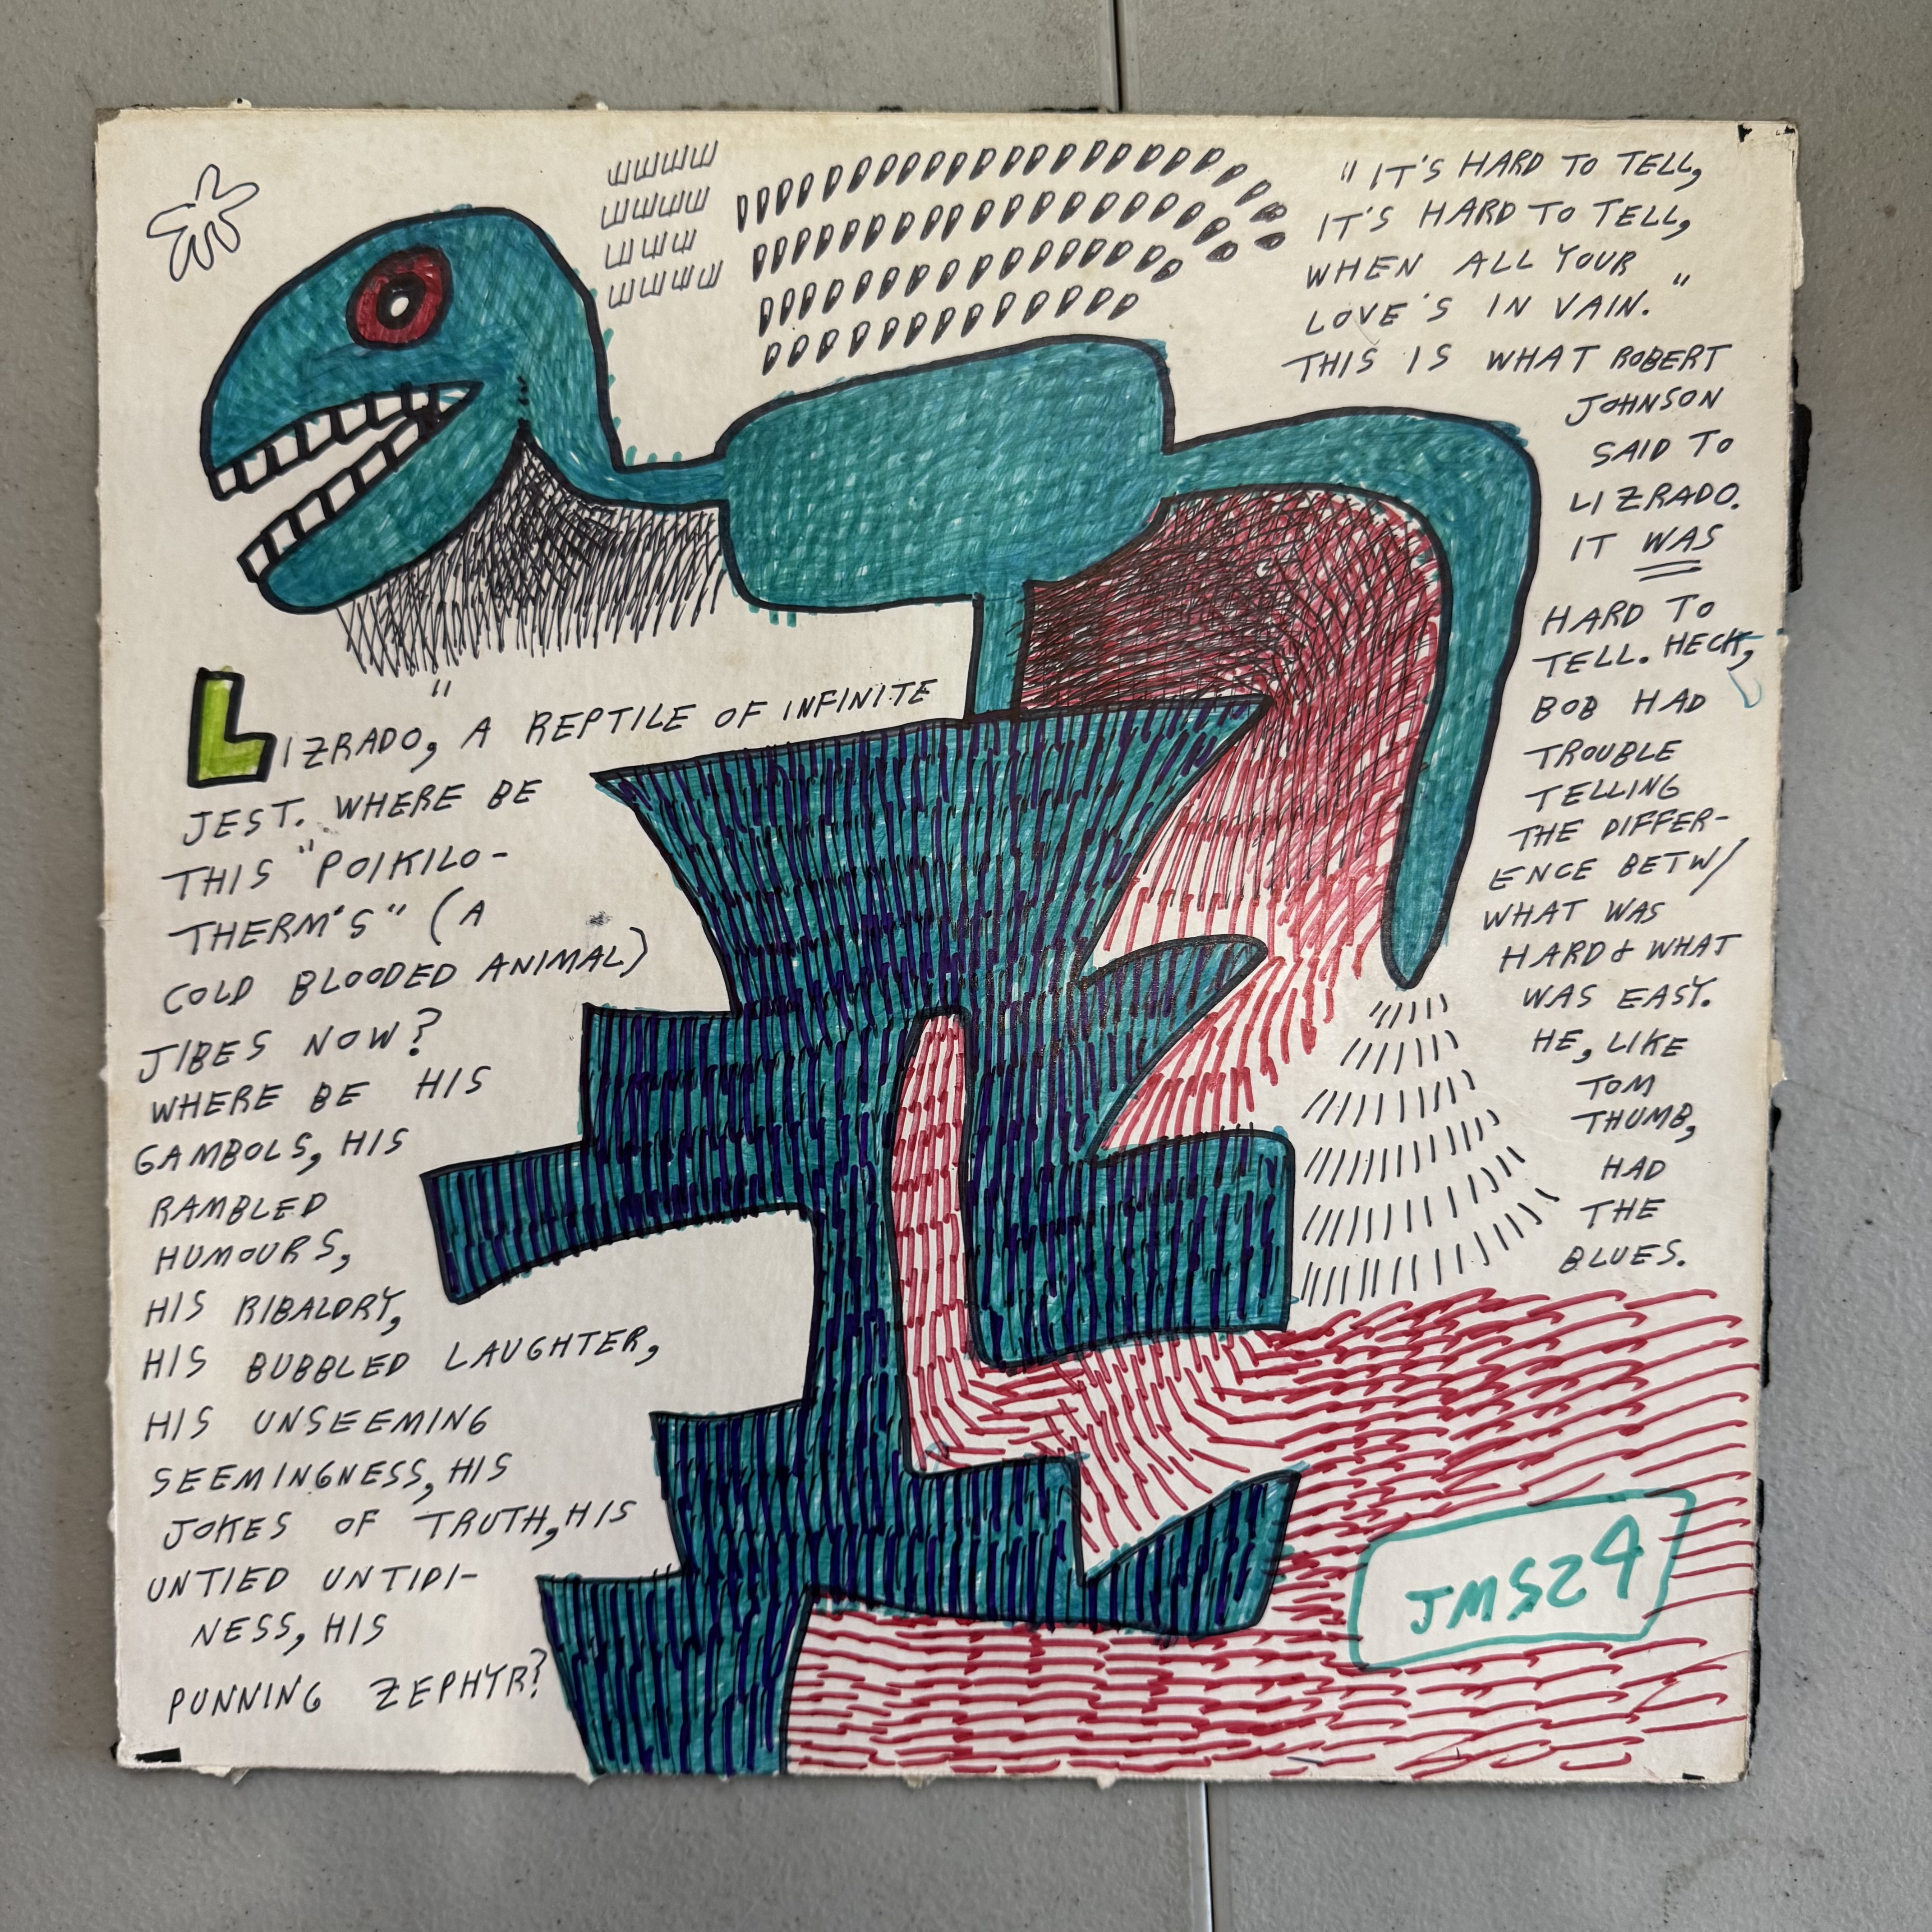 "
LIZRADO, A REPTILE OF INFINITE
JEST. WHERE BE
THIS "POIKILO-
THERM'S" (A
COLD BLOODED ANIMAL)
JIBES NOW?
WHERE BE HIS
GAMBOLS, HIS
RAMBLED
HUMOURS,
HIS RIBALDRY,
HIS BUBBLED LAUGHTER,
HIS UNSEEMING
SEEMINGNESS, HIS
JOKES OF TRUTH, HIS
UNTIED UNTIDI-
NESS, HIS
PUNNING ZEPHYR?
"IT'S HARD TO TELL,
IT'S HARD TO TELL,
WHEN ALL YOUR
LOVE'S IN VAIN."
THIS IS WHAT ROBERT
JOHNSON
SAID TO
LIZRADO.
IT WAS
HARD TO
TELL. HECK,
BOB HAD
TROUBLE
TELLING
THE DIFFER-
ENCE BETW/
WHAT WAS
HARD & WHAT
WAS EASY.
HE, LIKE
TOM
THUMB,
HAD
THE
BLUES.
JMS24